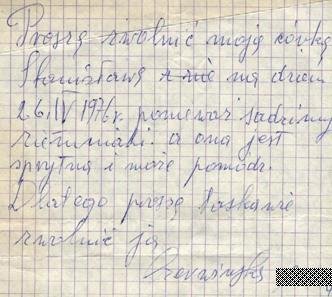 Proszę zwolnić moją córkę
Stanisławę z nie na dzień
26.IV 1976r. ponieważ sadzimy
ziemniaki. a ona jest
sprytna i może pomódz.
Dlatego proszę łaskawie
zwolnić ją